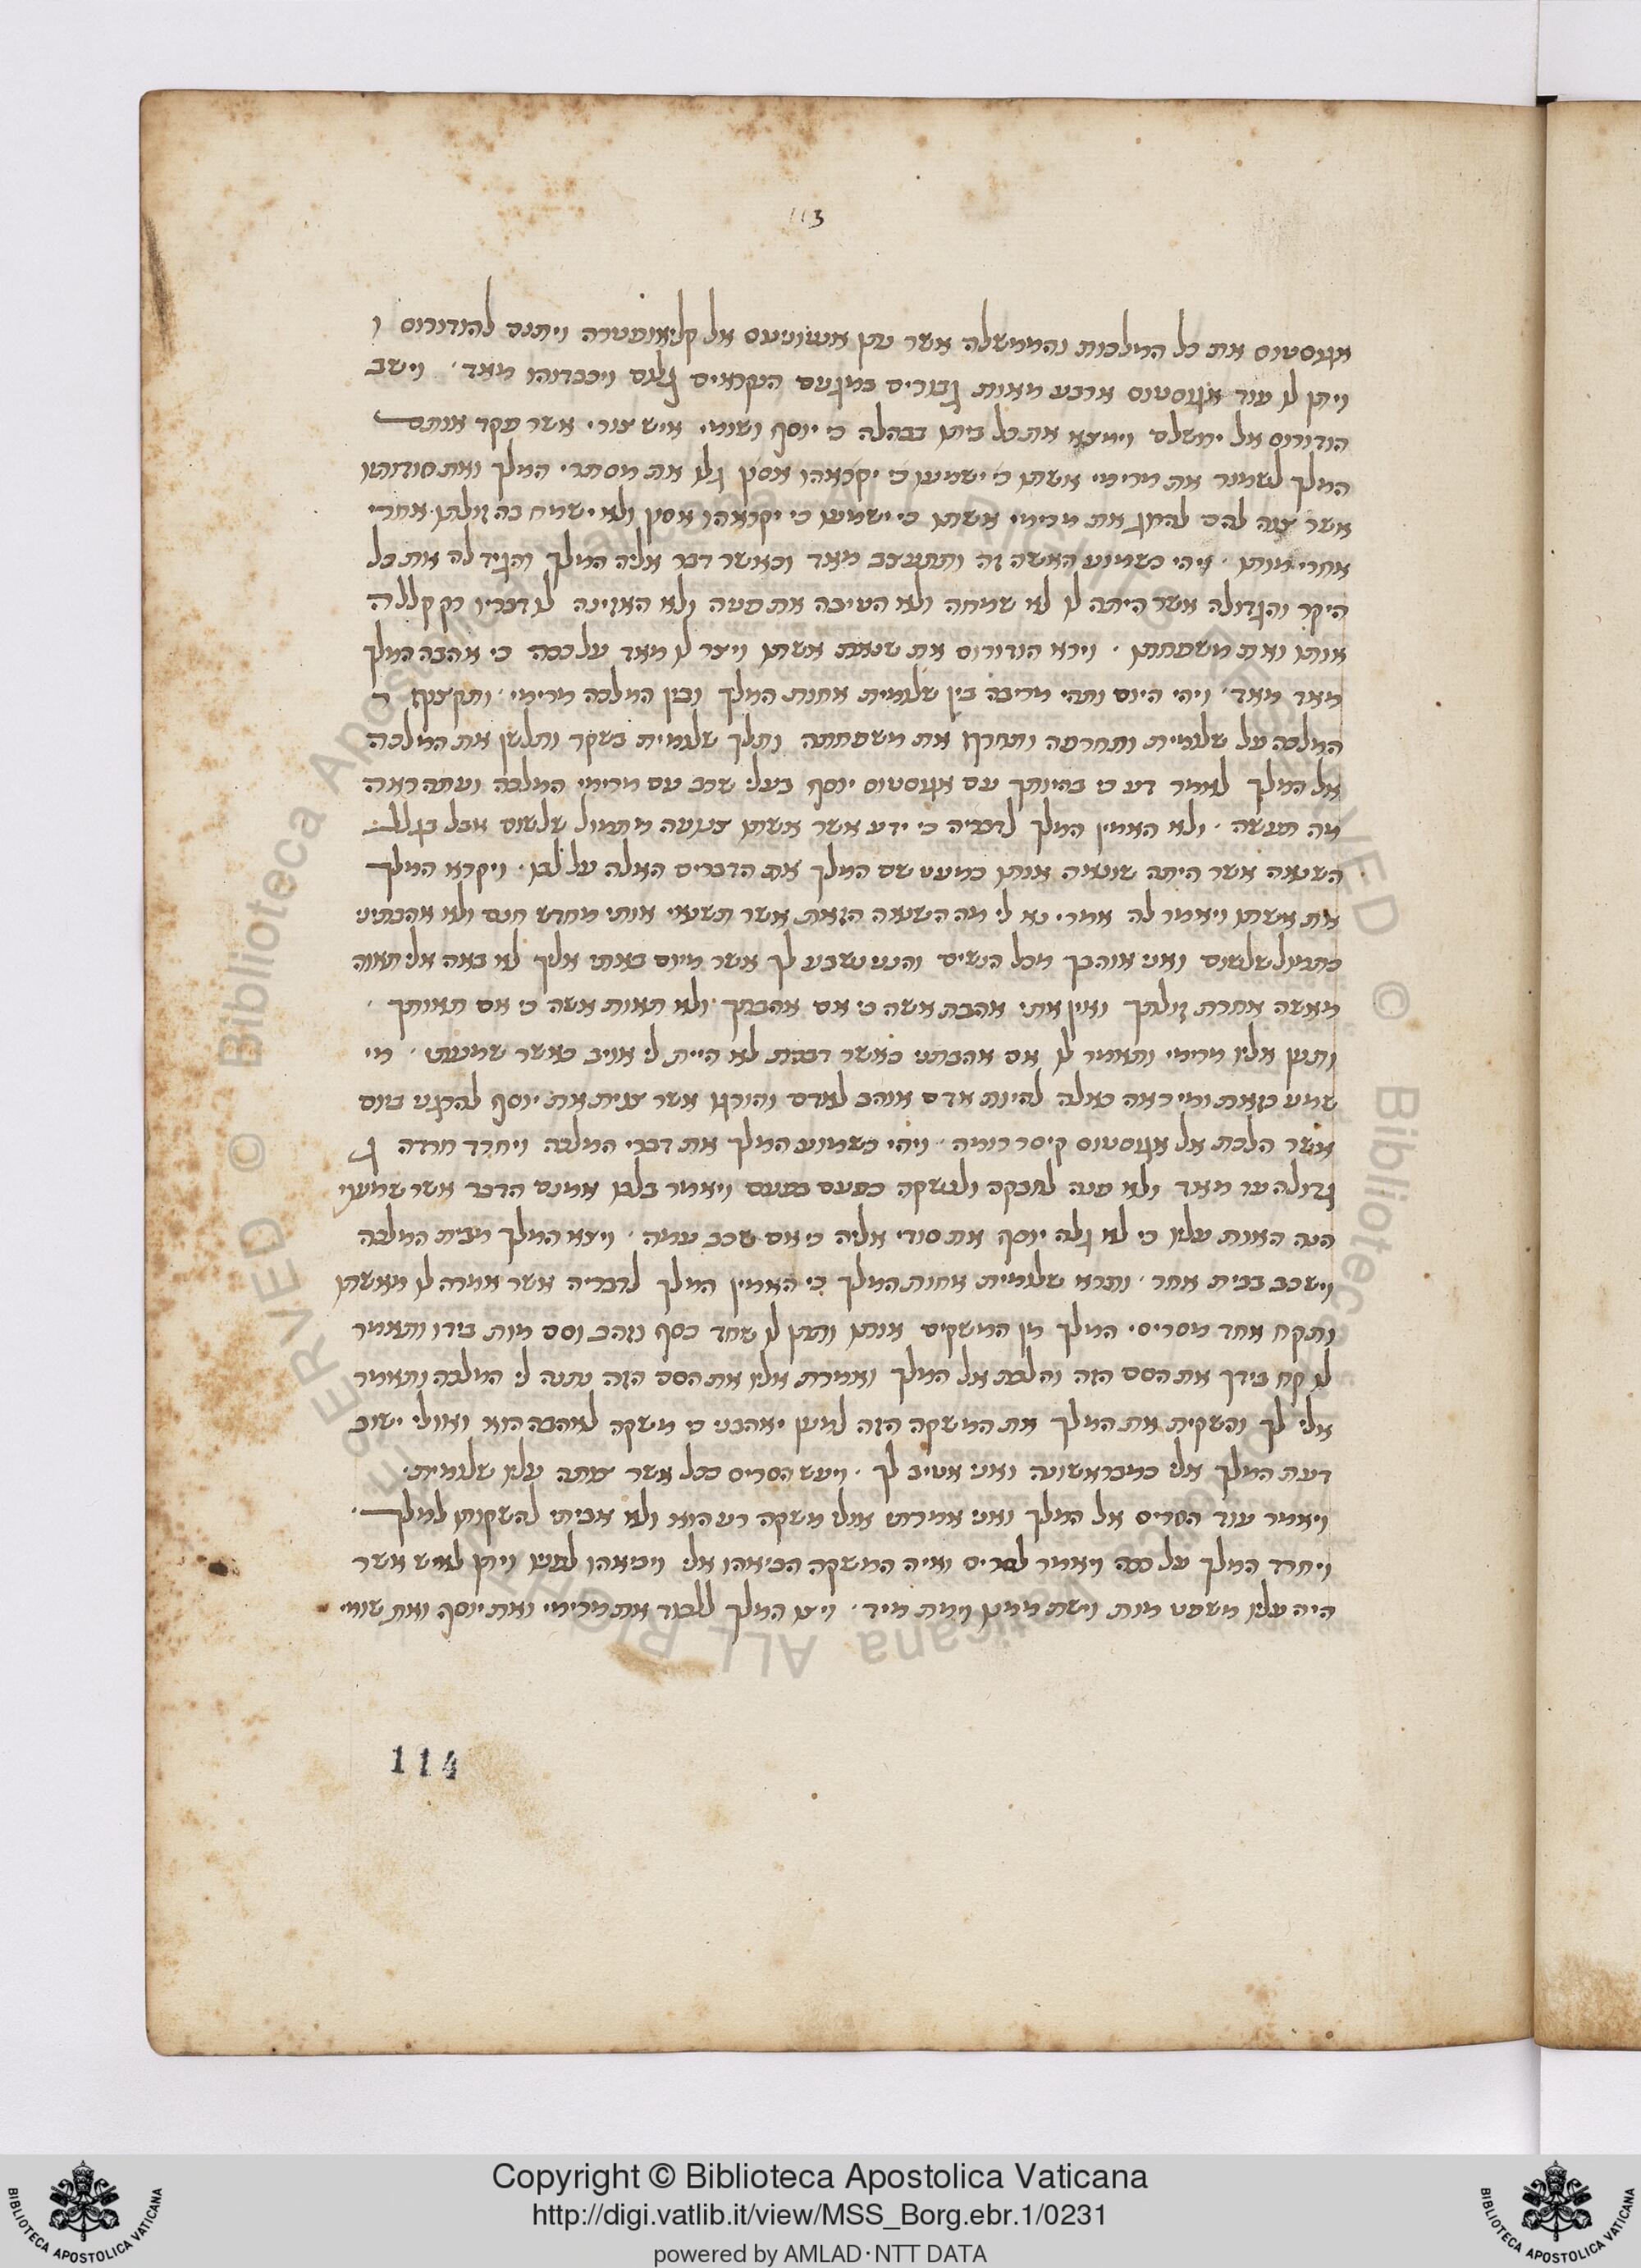 113
אגוסטוס את כל המלכות והממשלה אשר נתן אנטוניאוס אל קליאופטרה ויתנם להודורוס ו
ויתן לו עוד אגוסטוס ארבע מאות גבורים במגנים הנקראים גלים ויכבדוהו מאד · וישב
הורודוס אל ירושלם וימצא את כל ביתו בבהלה כי יוסף ושומי איש צורי אשר פקד אותם
המלך לשמור את מרימי אשתו כי ישמעו כי יקראהו אסון גלו את מסתרי המלך ואת סודותיו
אשר צוה להם להרוג את מרימי אשתו כי ישמעו כי יקראהו אסון ולא ישמח בה זולתו אחרי
אחרי מותו · ויהי כשמוע האשה זה ותתעצב מאד וכאשר דבר אליה המלך והגיד לה את כל
היקר והגדולה אשר היתה לו לא שמחה ולא הטיבה את פניה ולא האזינה לדבריו רק קללה
אותו ואת משפחתו · וירא הורודוס את שנאת אשתו ויצר לו מאד על ככה כי אהבה המלך
מאד מאד · ויהי היום ותהי מריבה בין שלומית אחות המלך ובין המלכה מרימי · ותקצוף ר
המלכה על שלומית ותחרפה ותחרף את משפחתה ותלך שלומית בשקר ותלשן את המלכה
אל המלך לאמר דע כי בהיותך עם אגוסטוס יוסף בעלי שכב עם מרימי המלכה ועתה ראה
מה תעשה · ולא האמין המלך לדבריה כי ידע אשר אשתו צנועה מתמול שלשום אבל בגלל
השנאה אשר היתה שונאה אותו כמעט שם המלך את הדברים האלה על לבו · ויקרא המלך
את אשתו ויאמר לה אמרי נא לי מה השנאה הזאת אשר תשנאי אותי מחדש חנם ולא אהבתיני
כתמול שלשום ואני אוהבך מכל הנשים והנני נשבע לך אשר מיום באתי אליך לא באה אלי תאוה
מאשה אחרת זולתך ואין אתי אהבת אשה כי אם אהבתך ולא תאות אשה כי אם תאותך ·
ותען אליו מרימי ותאמר לו אם אהבתני כאשר דברת לא היית לי אויב כאשר שמעתי · מי
שמע כזאת ומי ראה כאלה להיות אדם אוהב לאדם והורגו אשר צוית את יוסף להרגני ביום
אשר הלכת אל אגוסטוס קיסר רומיה · ויהי כשמוע המלך את דברי המלכה ויחרד חרדה ג
גדולה עד מאד ולא פנה לחבקה ולנשקה כפעם בפעם ויאמר בלבו אמנם הדבר אשר שמעתי
הנה האות עליו כי לא גלה יוסף את סודי אליה כי אם שכב עמה · ויצא המלך מבית המלכה
וישכב בבית אחר · ותרא שלומית אחות המלך כי האמין המלך לדבריה אשר אמרה לו מאשתו
ותקח אחד מסריסי המלך מן המשקים אותו ותתן לו שחד כסף וזהב וסם מות בידו ותאמר
לו קח בידך את הסם הזה והלכת אל המלך ואמרת אליו את הסם הזה נתנה לי המלכה ותאמר
אלי לך והשקית את המלך את המשקה הזה למען יאהבני כי משקה לאהבה הוא ואולי ישוב
דעת המלך אלי כמבראשונה ואני אטיב לך · ויעש הסריס ככל אשר צותה עליו שלומית ·
ויאמר עוד הסריס אל המלך ואני אמרתי אולי משקה רע הוא ולא אביתי להשקותו למלך ·
ויחרד המלך על ככה ויאמר לסריס ואיה המשקה הביאהו אלי ויביאהו לפניו ויתן לאיש אשר
היה עליו משפט מות וישת ממנו וימת מיד · ויצו המלך ללכוד את מרימי ואת יוסף ואת שומי
114
Copyright © Biblioteca Apostolica Vaticana
http://digi.vatlib.it/view/MSS_Borg.ebr.1/0231
powered by AMLAD·NTT DATA
BIBLIOTECA APOSTOLICA VATICANA
BIBLIOTECA APOSTOLICA VATICANA